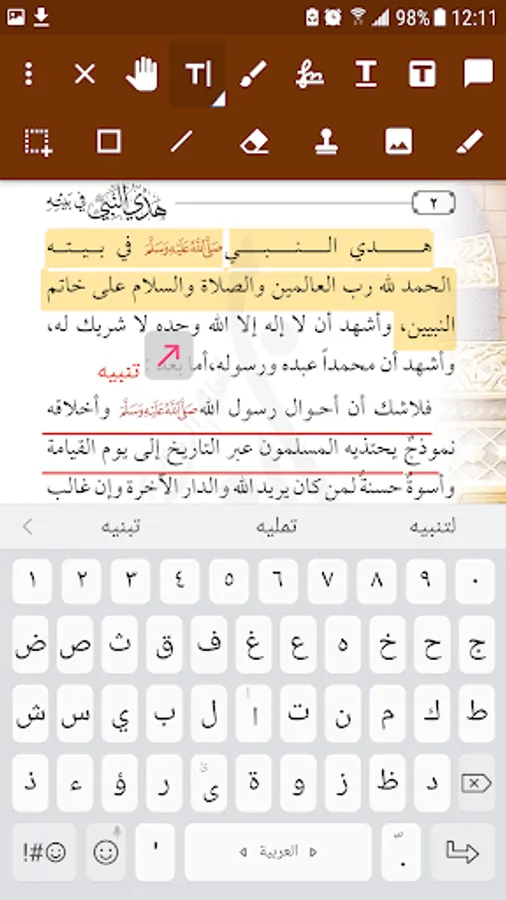 98% 12:11
T
T
T
هدي النبي في بيته
٢
هـدي النـبـي ﷺ في بيـتـه
الحمد لله رب العالمين والصلاة والسلام على خاتم
النبيين، وأشهد أن لا إله إلا الله وحده لا شريك له،
وأشهد أن محمداً عبده ورسوله،أما بعد :
تنبيه
فلاشك أن أحوال رسول الله ﷺ وأخلاقه
نموذجٌ يحتذيه المسلمون عبر التاريخ إلى يوم القيامة
وأسوةٌ حسنةٌ لمن كان يريد الله والدار الآخرة وإن غالب
لتنبيه تمليه تبنيه
١ ٢ ٣ ٤ ٥ ٦ ٧ ٨ ٩ ٠
ض ص ث ق ف غ ع ه خ ح ج
ش س ي ب ل ا ت ن م ك ط
ذ ء ؤ ر ى ة و ز ظ د
!#☺ ' العربية .